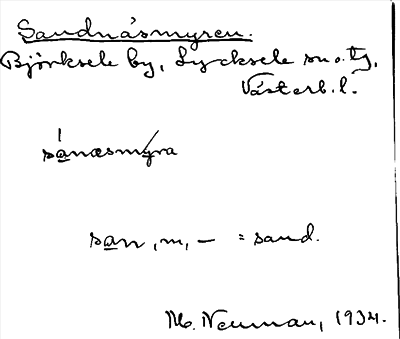 Sandnäsmyren.
Björksele by, Lycksele sn o. tg,
Västerb. l.
sànæsmýra
san, m, – = sand.
M. Neuman, 1934.